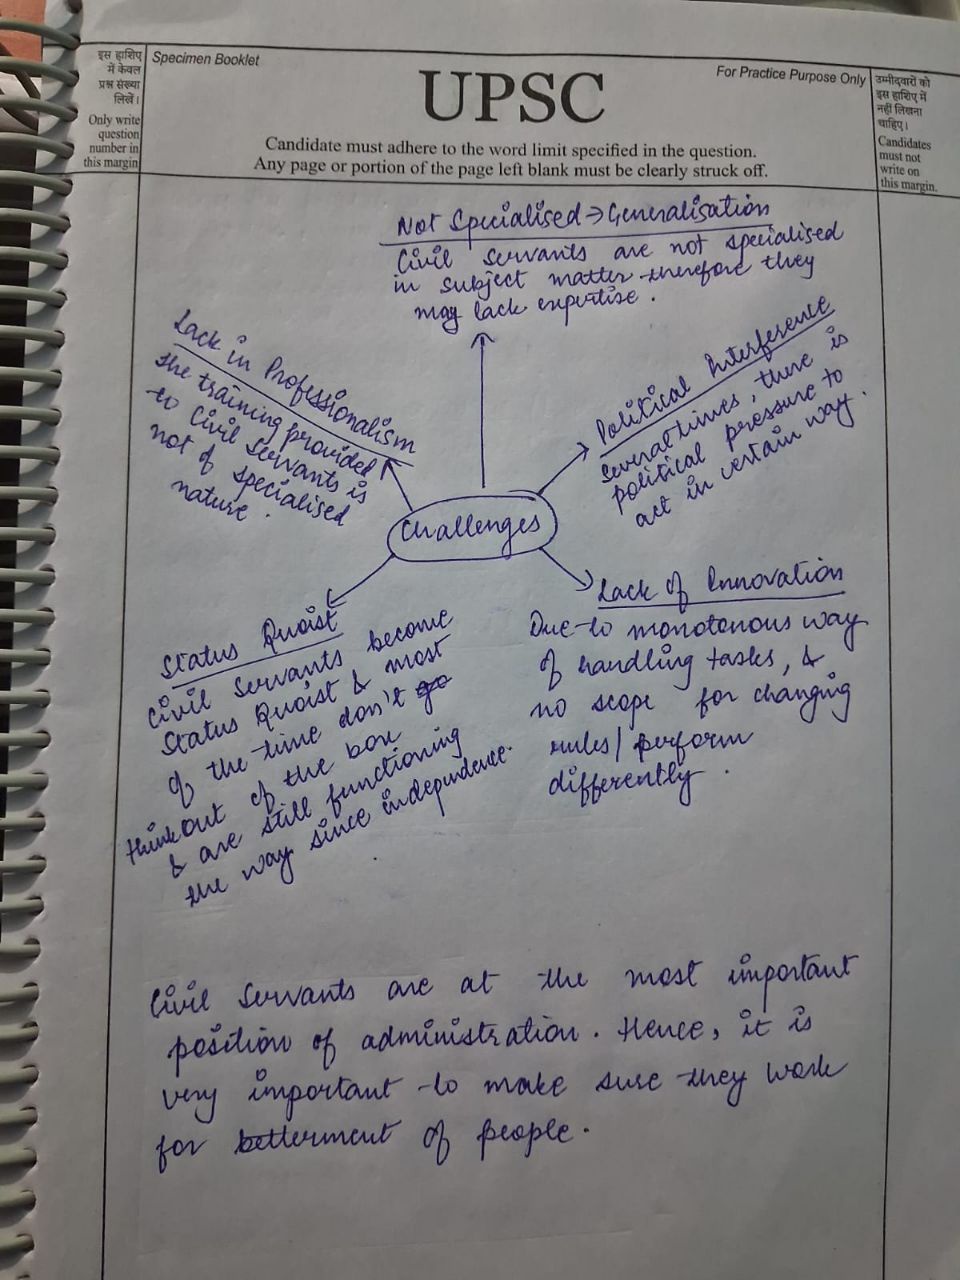 इस हाशिए
में केवल
प्रश्न संख्या
लिखें।
Only write
question
number in
this margin
Specimen Booklet
For Practice Purpose Only
UPSC
Candidate must adhere to the word limit specified in the question.
Any page or portion of the page left blank must be clearly struck off.
उम्मीदवारों को
इस हाशिए में
नहीं लिखना
चाहिए।
Candidates
must not
write on
this margin.
Not Specialised → Generalisation
Civil servants are not specialised
in subject matter therefore they
may lack expertise.
Lack in Professionalism
the training provided
to Civil Servants is
not of specialised
nature.
Political Interference
Several times, there is
political pressure to
act in certain way.
Challenges
Status Quoist
Civil Servants become
Status Quoist & most
of the time don't go
think out of the box
& are still functioning
the way since independence.
Lack of Innovation
Due to monotenous way
of handling tasks, &
no scope for changing
rules/perform
differently.
Civil Servants are at the most important
position of administration. Hence, it is
very important to make sure they work
for betterment of people.